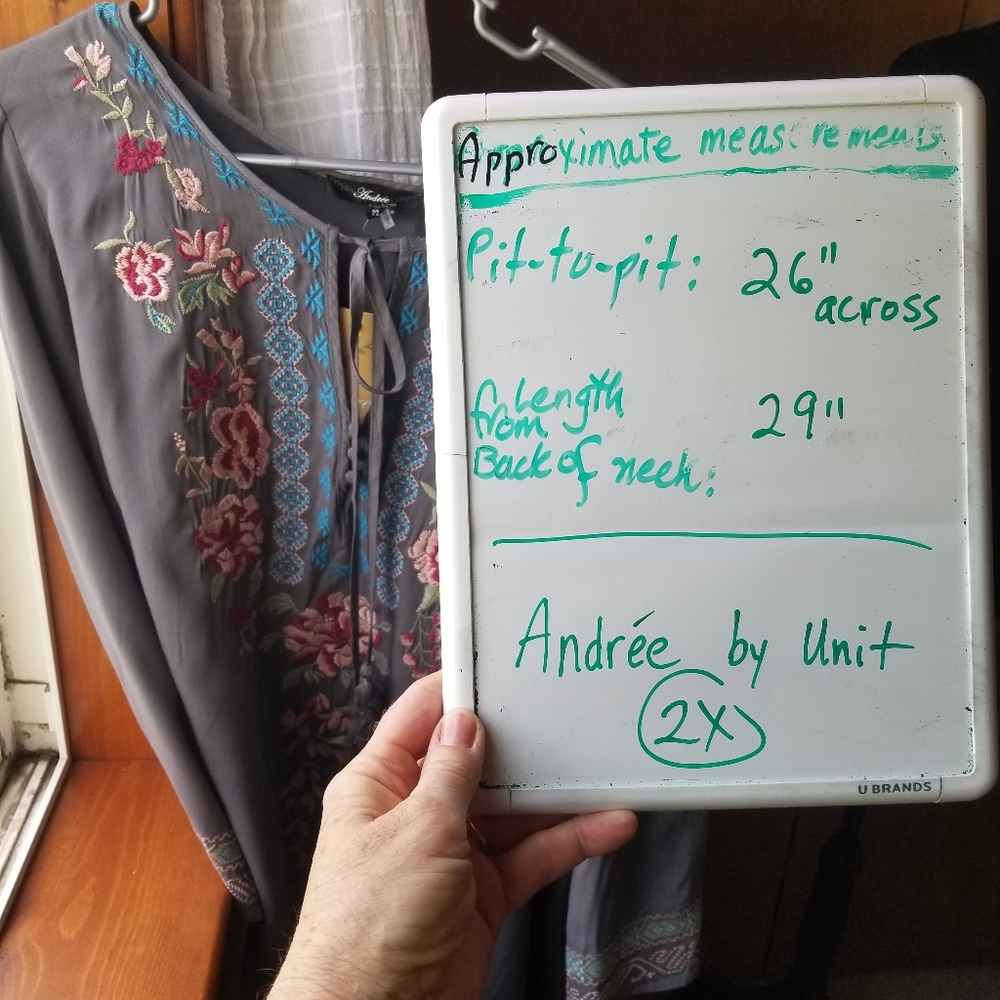 Andrée
2X
Approximate measurements
Pit-to-pit: 26"
across
Length
from
Back of neck:
29"
Andrée by Unit
2X
U BRANDS